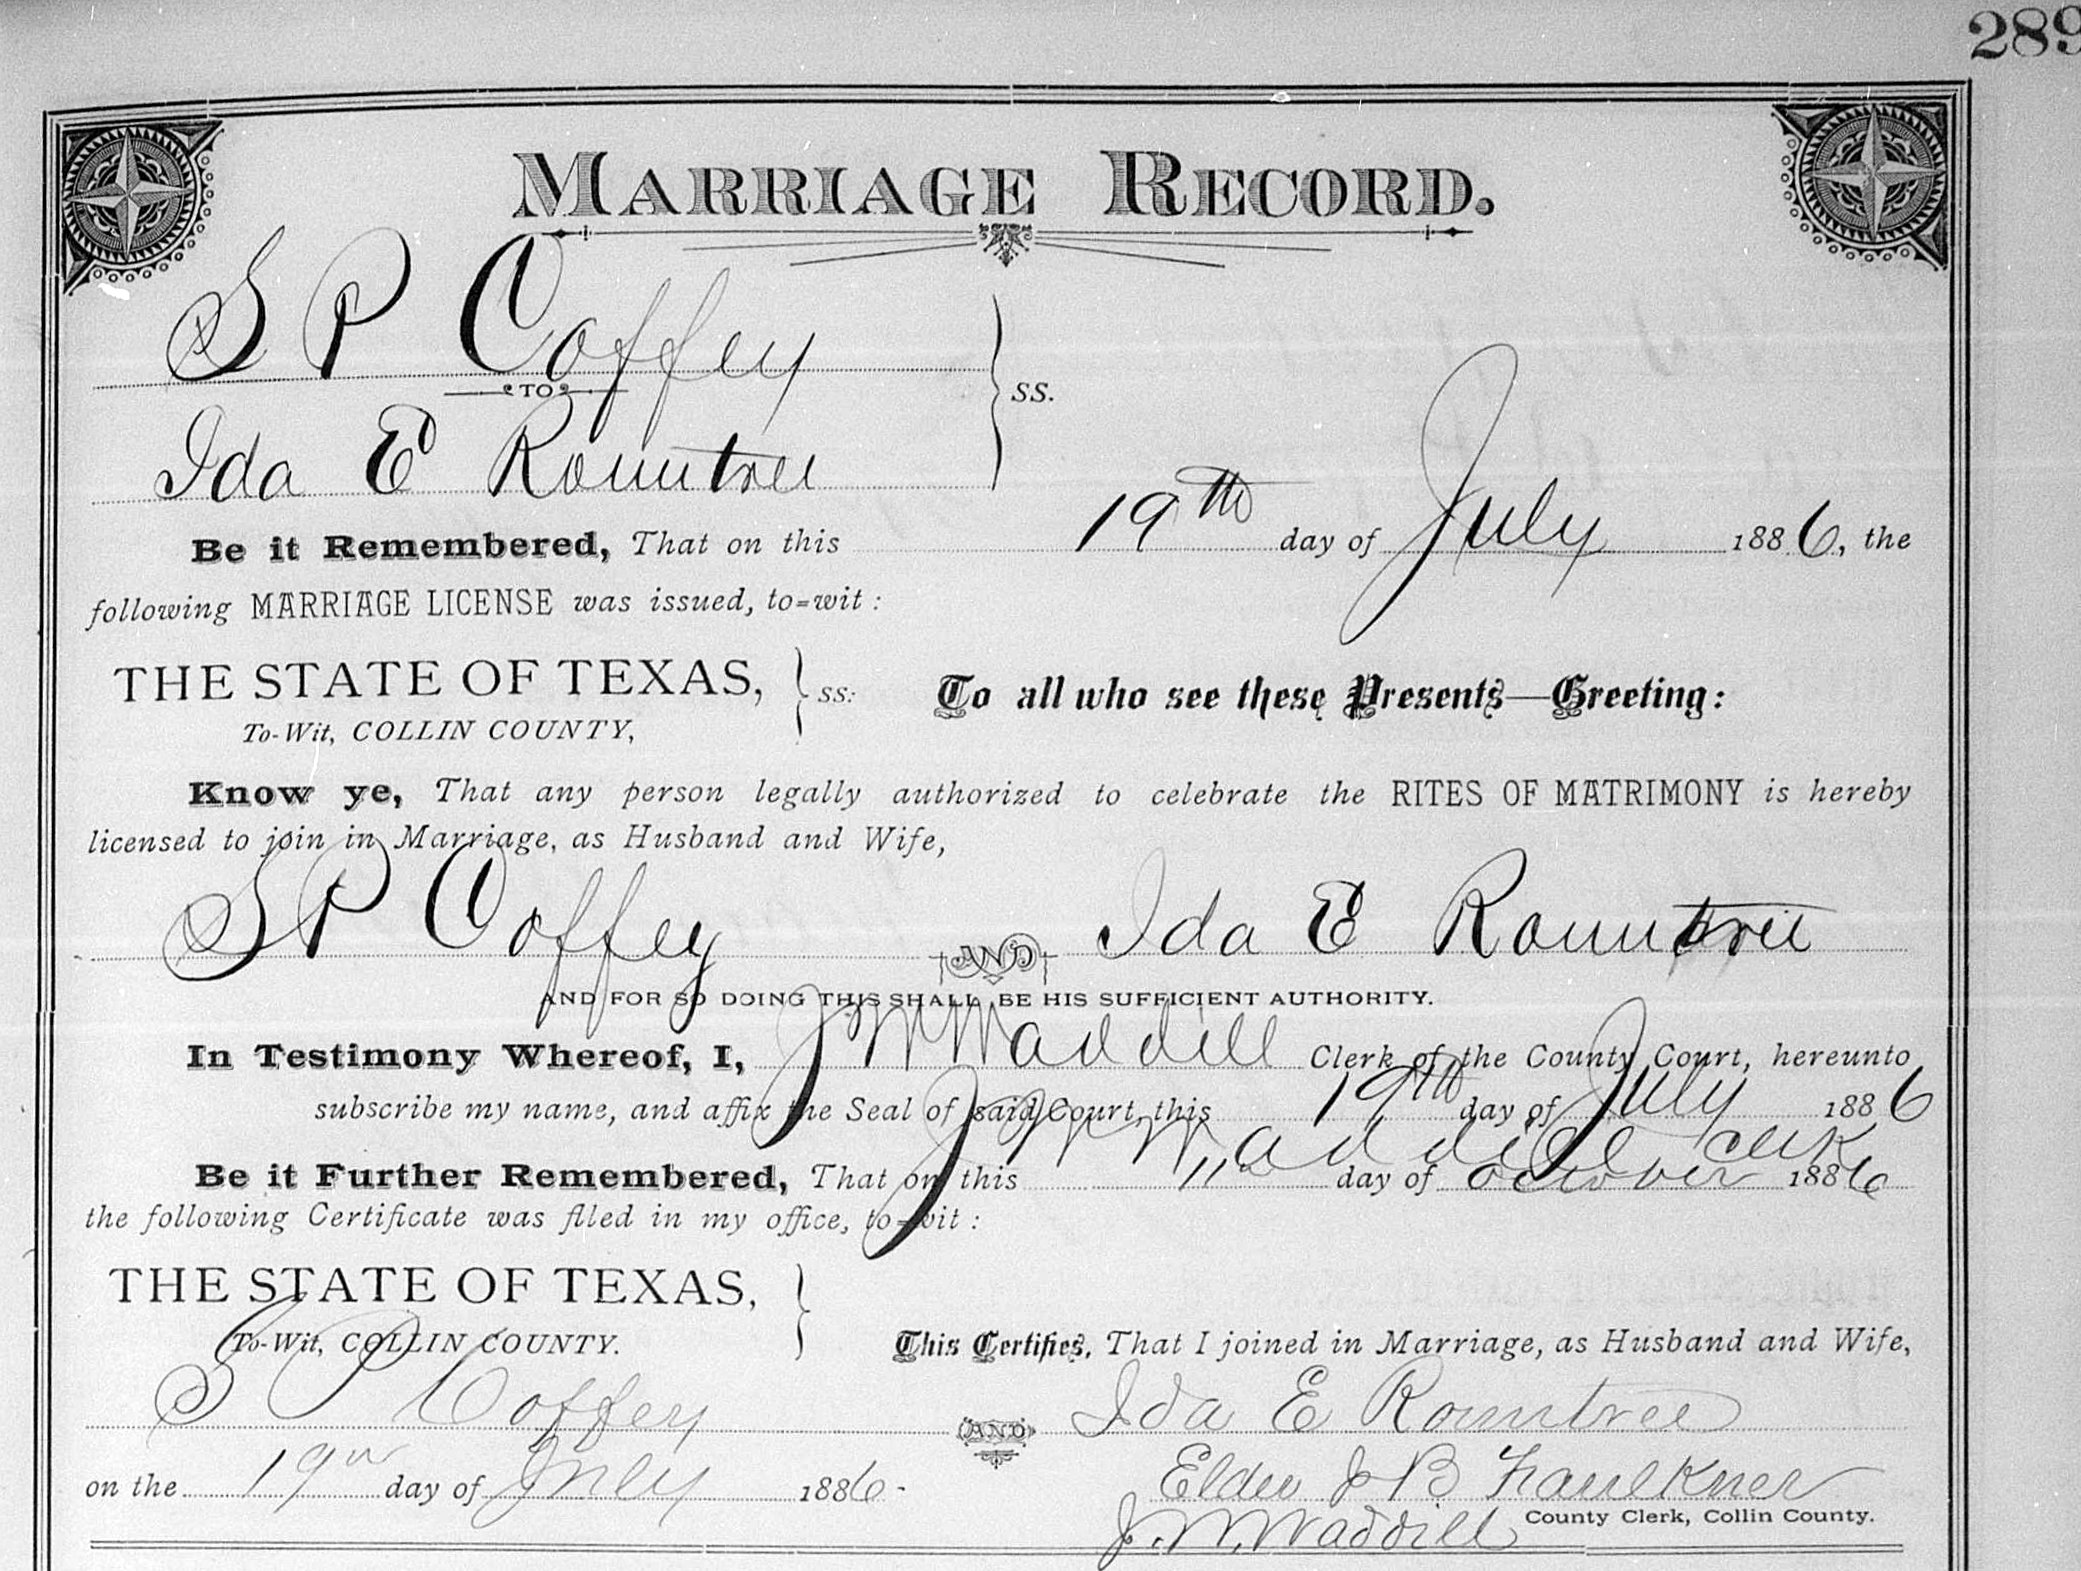 289
MARRIAGE RECORD.
S P Coffey
TO
SS.
Ida E Rountree
Be it Remembered, That on this 19th day of July 1886, the
following MARRIAGE LICENSE was issued, to=wit:
THE STATE OF TEXAS,
To-Wit, COLLIN COUNTY,
SS:
To all who see these Presents—Greeting:
Know ye, That any person legally authorized to celebrate the RITES OF MATRIMONY is hereby
licensed to join in Marriage, as Husband and Wife,
S P Coffey AND Ida E Rountree
AND FOR SO DOING THIS SHALL BE HIS SUFFICIENT AUTHORITY.
In Testimony Whereof, I, J M Waddill Clerk of the County Court, hereunto
subscribe my name, and affix the Seal of said Court, this 19th day of July 1886
J M Waddill Clerk
Be it Further Remembered, That on this 11th day of October 1886
the following Certificate was filed in my office, to=wit:
THE STATE OF TEXAS,
To-Wit, COLLIN COUNTY.
This Certifies, That I joined in Marriage, as Husband and Wife,
S P Coffey AND Ida E Rountree
on the 19th day of July 1886. Elder J B Faulkner
J. M. Waddill County Clerk, Collin County.